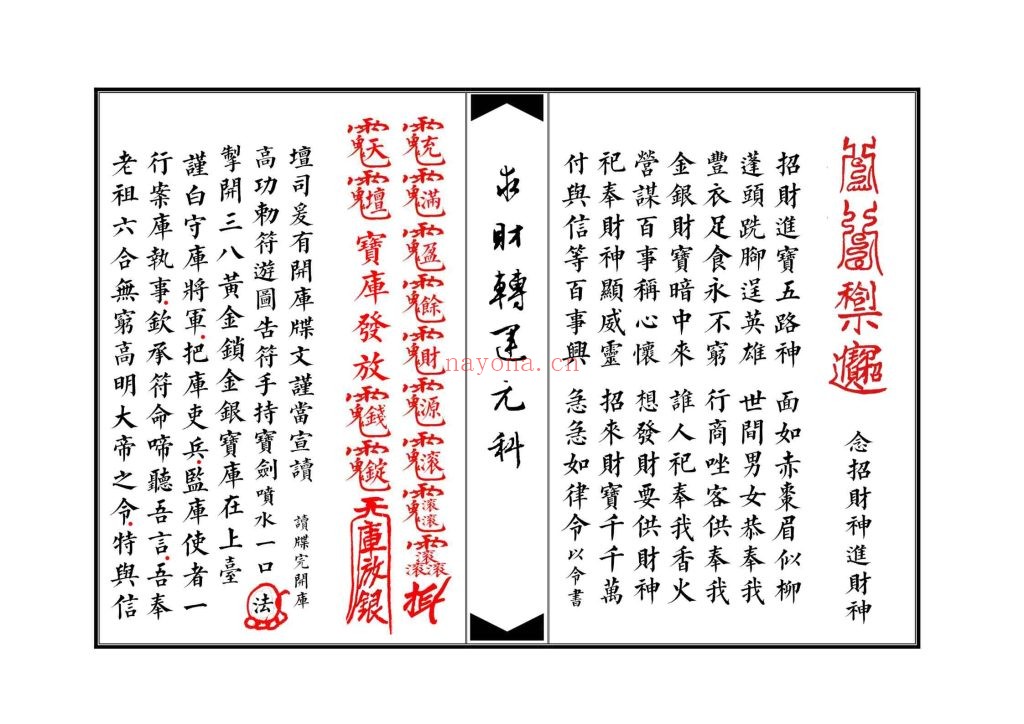 念招財神進財神
招財進寶五路神 面如赤棗眉似柳
蓬頭跣腳逞英雄 世間男女恭奉我
豐衣足食永不窮 行商唑客供奉我
金銀財寶暗中來 誰人祀奉我香火
營謀百事稱心懷 想發財要供財神
祀奉財神顯威靈 招來財寶千千萬
付與信等百事興 急急如律令以令書
求財轉運元科
充滿盈餘財源滾滾滾滾滾滾
天壇寶庫發放錢錠
庫放銀
壇司爰有開庫牒文謹當宣讀 讀牒完開庫
高功勅符遊圖告符手持寶劍噴水一口 法
掣開三八黃金鎖金銀寶庫在上臺
謹白守庫將軍把庫吏兵監庫使者一
行案庫執事欽承符命啼聽吾言吾奉
老祖六合無窮高明大帝之令特與信
nayona.cn